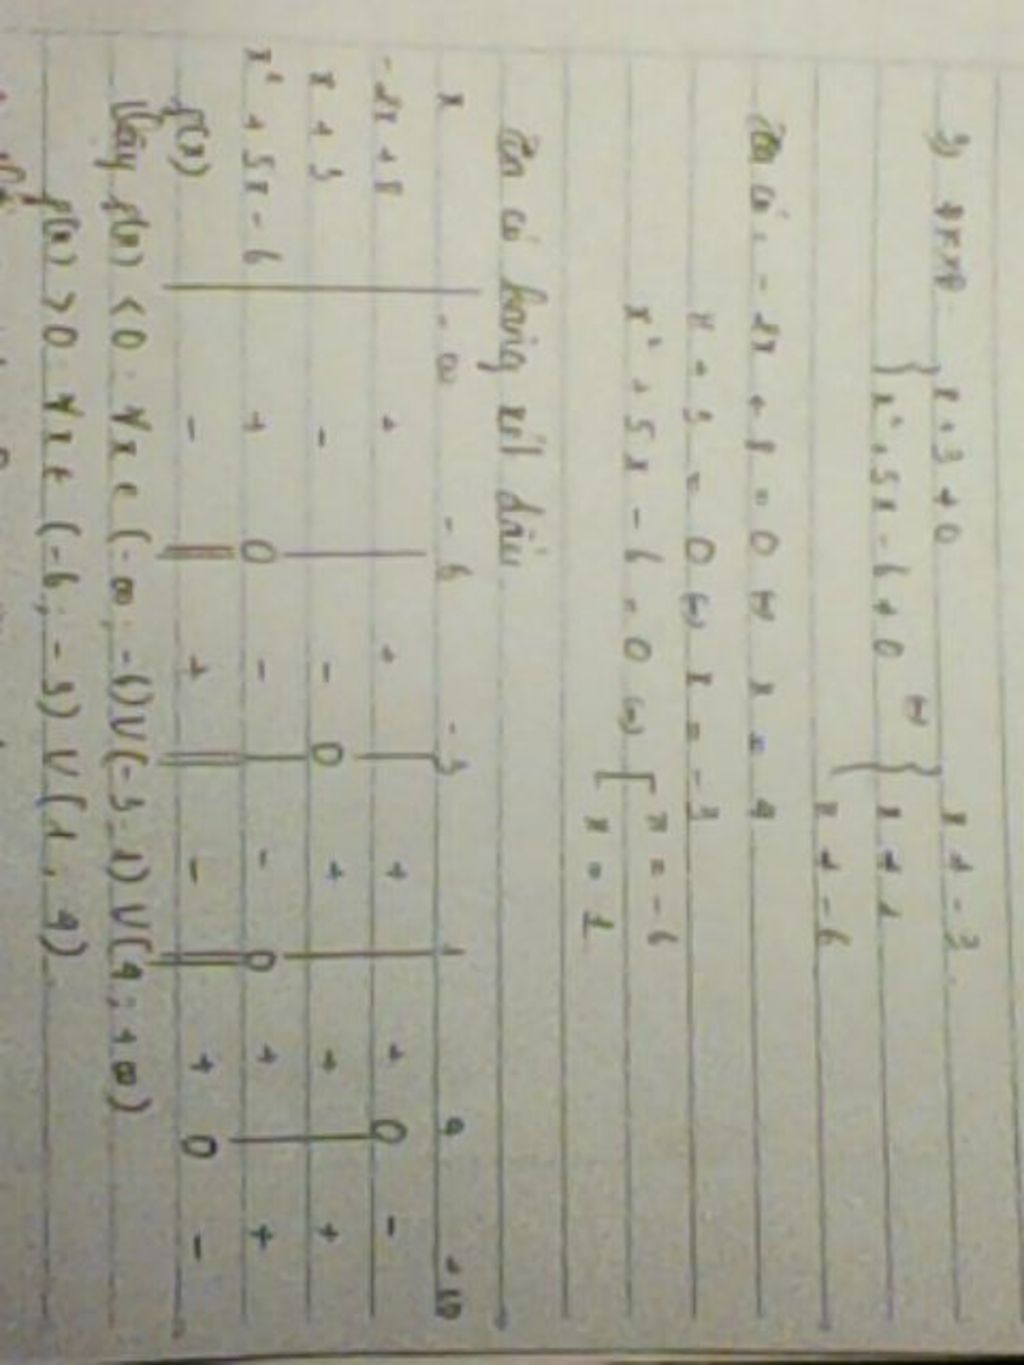 3) ĐKXĐ: { x + 3 ≠ 0 ⇔ { x ≠ -3
x² + 5x - 6 ≠ 0 x ≠ 1
x ≠ -6
Ta có: -2x + 8 = 0 ⇔ x = 4
x + 3 = 0 ⇔ x = -3
x² + 5x - 6 = 0 ⇔ [ x = -6
x = 1
Ta có bảng xét dấu
x -∞ -6 -3 1 4 +∞
-2x + 8 + | + | + | + 0 -
x + 3 - | - 0 + | + | +
x² + 5x - 6 + 0 - | - 0 + | +
f(x) - || + || - || + 0 -
Vậy f(x) < 0 : ∀x ∈ (-∞; -6) ∪ (-3; 1) ∪ (4; +∞)
f(x) > 0 ∀x ∈ (-6; -3) ∪ (1; 4)